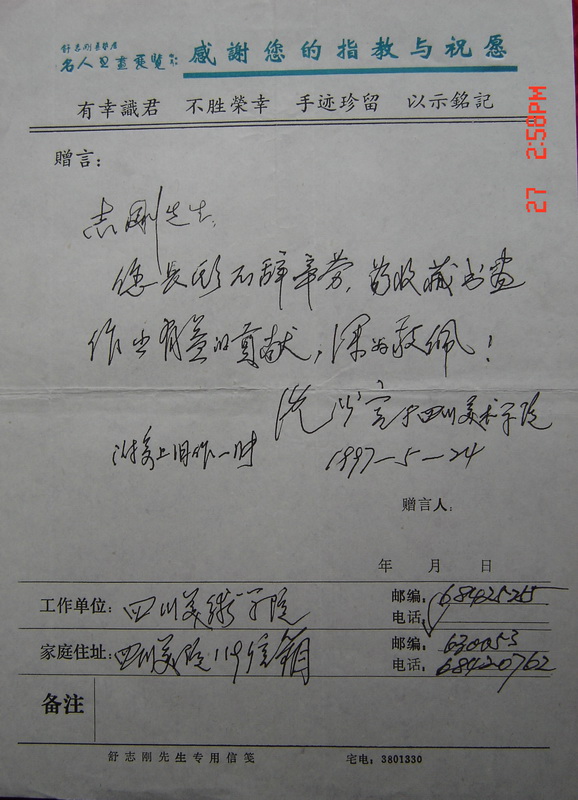 舒志刚
名人书画展览 感謝您的指教与祝愿
有幸識君 不胜榮幸 手迹珍留 以示銘記
27 2:58PM
赠言：
志刚先生：
您长期不辞辛劳，为收藏书画
作出有益的贡献，深为敬佩！
于四川美术学院
1997-5-24
赠言人：
年 月 日
工作单位：四川美術学院 邮编：
电话：68425255
家庭住址：四川美院119信箱 邮编：630053
电话：68420762
备注
舒志刚先生专用信笺 宅电：3801330